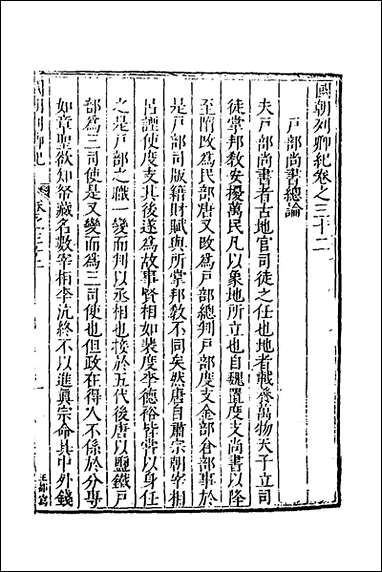 國朝列卿紀卷之三十二
戶部尚書總論
夫戶部尚書者古地官司徒之任也地者載養萬物天子立司
徒掌邦教安擾萬民凡以象地所立也自魏置度支尚書以降
至隋改為民部唐又改為戶部總判戶部度支金部倉部事於
是戶部司版籍財賦與所掌邦教不同矣然唐自肅宗朝宰相
呂諲使度支其後遂為故事賢相如裴度李德裕皆嘗以身任
之是戶部之職一變而判以丞相也接於五代後唐以鹽鐵戶
部為三司使是又變而為三司使也但政在得人不係於分專
如章聖欲知帑藏名數宰相李沆終不以進真宗命具中外錢
國朝列卿紀
卷之三十二